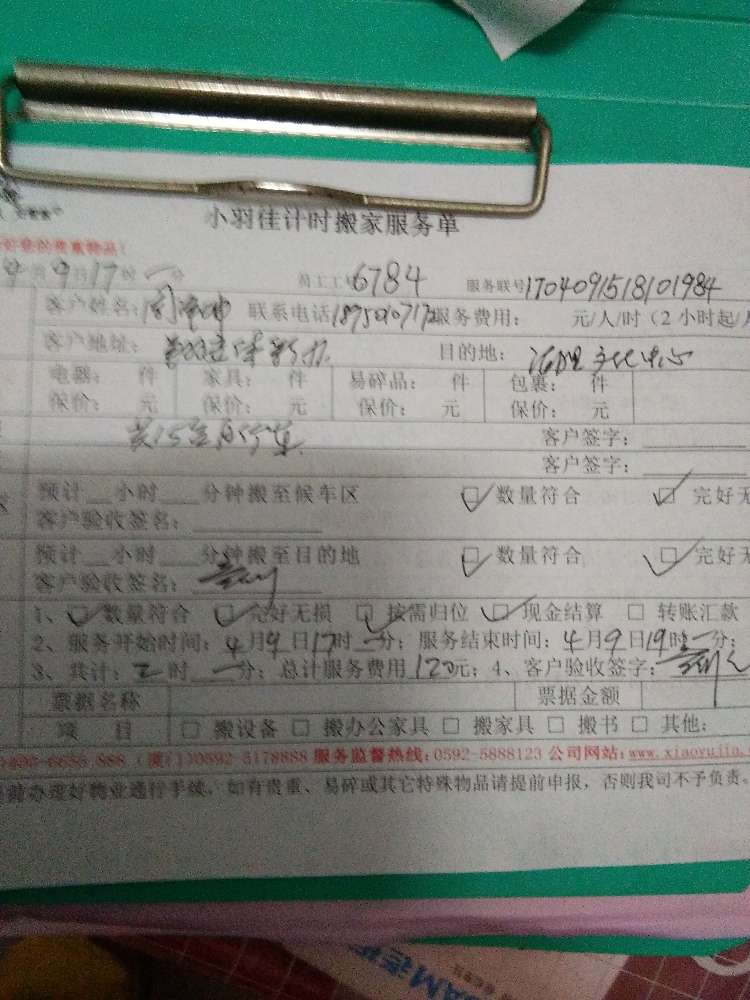 小羽佳计时搬家服务单
4月9日17时一分 员工工号6784 服务联号1704091518101984
客户姓名: 联系电话 服务费用: 元/人/时(2小时起/
客户地址: 目的地: 文化中心
电器: 件 家具: 件 易碎品: 件 包裹: 件
保价: 元 保价: 元 保价: 元 保价: 元
共15台自行车 客户签字:
客户签字:
预计__小时__分钟搬至候车区 数量符合 完好无
客户验收签名:
预计__小时__分钟搬至目的地 数量符合 完好无
客户验收签名:
1、 数量符合 完好无损 按需归位 现金结算 转账汇款
2、服务开始时间:4月9日17时一分;服务结束时间:4月9日19时一分;
3、共计:2时一分;总计服务费用120元;4、客户验收签字:
票据名称 票据金额
项 目 搬设备 搬办公家具 搬家具 搬书 其他:
400-6686-888 (厦门)0592-5178888 服务监督热线:0592-5888123 公司网站:www.xiaoyujia.
前办理好物业通行手续,如有贵重、易碎或其它特殊物品请提前申报,否则我司不予负责。